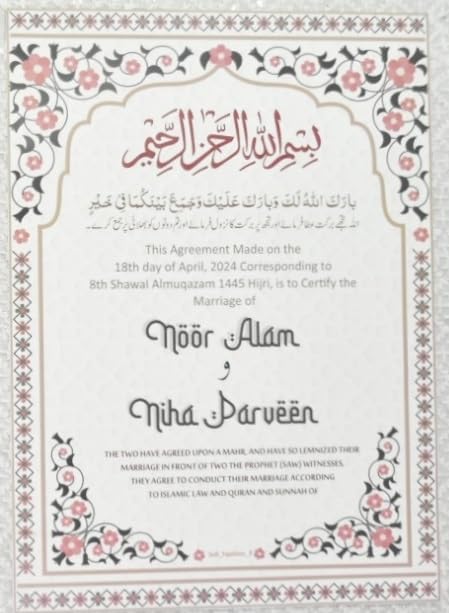 بِسْمِ اللهِ الرَّحْمٰنِ الرَّحِيْمِ
بَارَكَ اللهُ لَكَ وَبَارَكَ عَلَيْكَ وَجَمَعَ بَيْنَكُمَا فِيْ خَيْرٍ
اللہ تجھے برکت عطا فرمائے اور تجھ پر برکت کا نزول فرمائے اور تم دونوں کو بھلائی پر جمع کرے۔
This Agreement Made on the
18th day of April, 2024 Corresponding to
8th Shawal Almuqazam 1445 Hijri, is to Certify the
Marriage of
Nöör Alam
و
Niha Parvëën
THE TWO HAVE AGREED UPON A MAHR, AND HAVE SO LEMNIZED THEIR
MARRIAGE IN FRONT OF TWO THE PROPHET (SAW) WITNESSES.
THEY AGREE TO CONDUCT THEIR MARRIAGE ACCORDING
TO ISLAMIC LAW AND QURAN AND SUNNAH OF